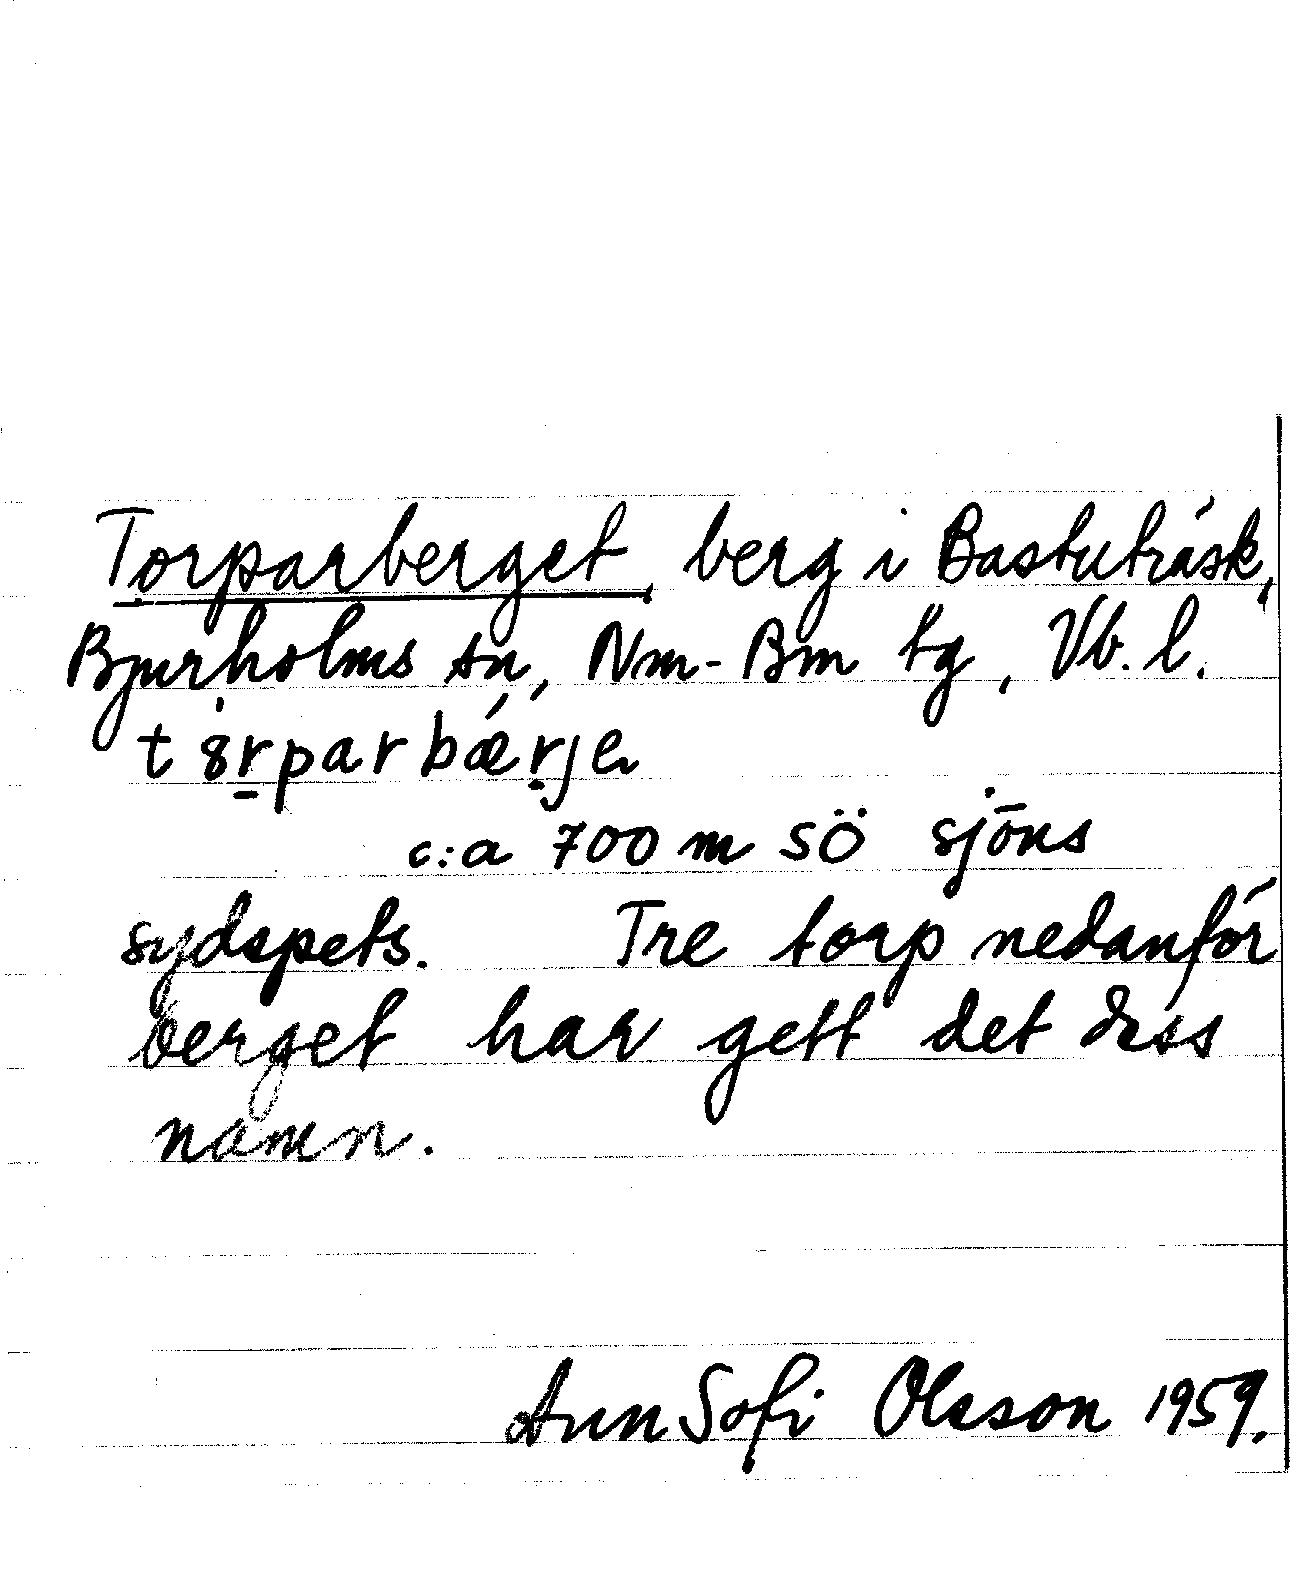 Torparberget, berg i Bastuträsk,
Bjurholms sn, Nm-Bm tg, Vb. l.
t8rparbǽrje
c:a 700 m SÖ sjöns
sydspets. Tre torp nedanför
berget har gett det dess
namn.
Ann Sofi Olsson 1959.